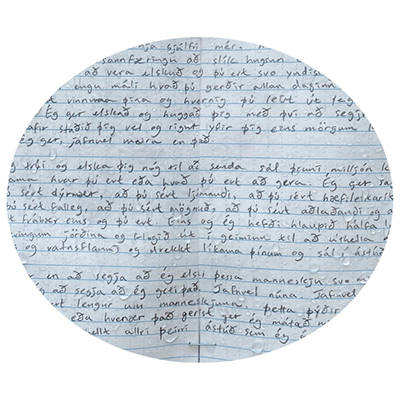 sjálfri mér a
sannfæringu að slík hugsun
að vera elskuð og þú ert svo yndisl
engu máli hvað þú gerðir allan daginn
vinnuna þína og hvernig þú leist út þeg
Ég ger elskað og huggað þig með því að segja
staðið þig vel og rignt yfir þig eins mörgum k
ég ger, jafnvel meira en það
trúi og elska þig nóg til að senda sál þinni milljón k
sama hvar þú ert eða hvað þú ert að gera. Ég ger sa
þú sért dýrmæt, að þú sért ljómandi, að þú sért hæfileikarík
þú sért falleg, að þú sért mögnuð, að þú sért aðlaðandi og a
frábær eins og þú ert. Eins og ég hefði hlaupið hálfa l
kringum jörðina og flogið út í geiminn til að úthella
og vatnsflaum og drekkt líkama þínum og sál í ástúð
en að segja að ég elski þessa manneskju svo m
að segja að ég geti það. Jafnvel núna. Jafnvel
ert lengur hans manneskjuna, þetta þýðir
eða hvenær það gerist ger ég mátað m
hellt allri þeirri ástúð sem ég